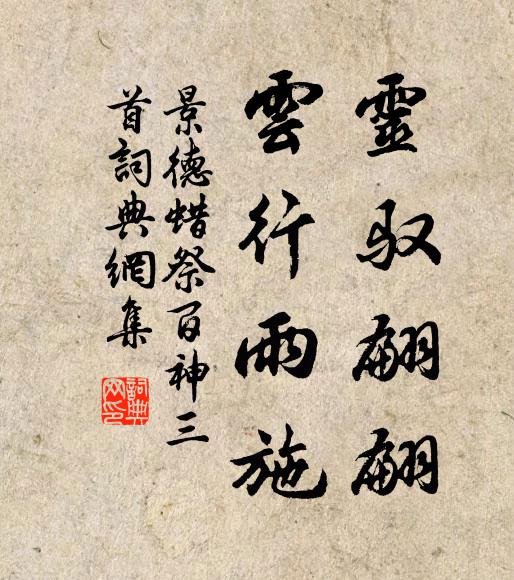 靈驭翩翩
雲行雨施
景德蜡祭百神三
首詞典網集
詞典
网印